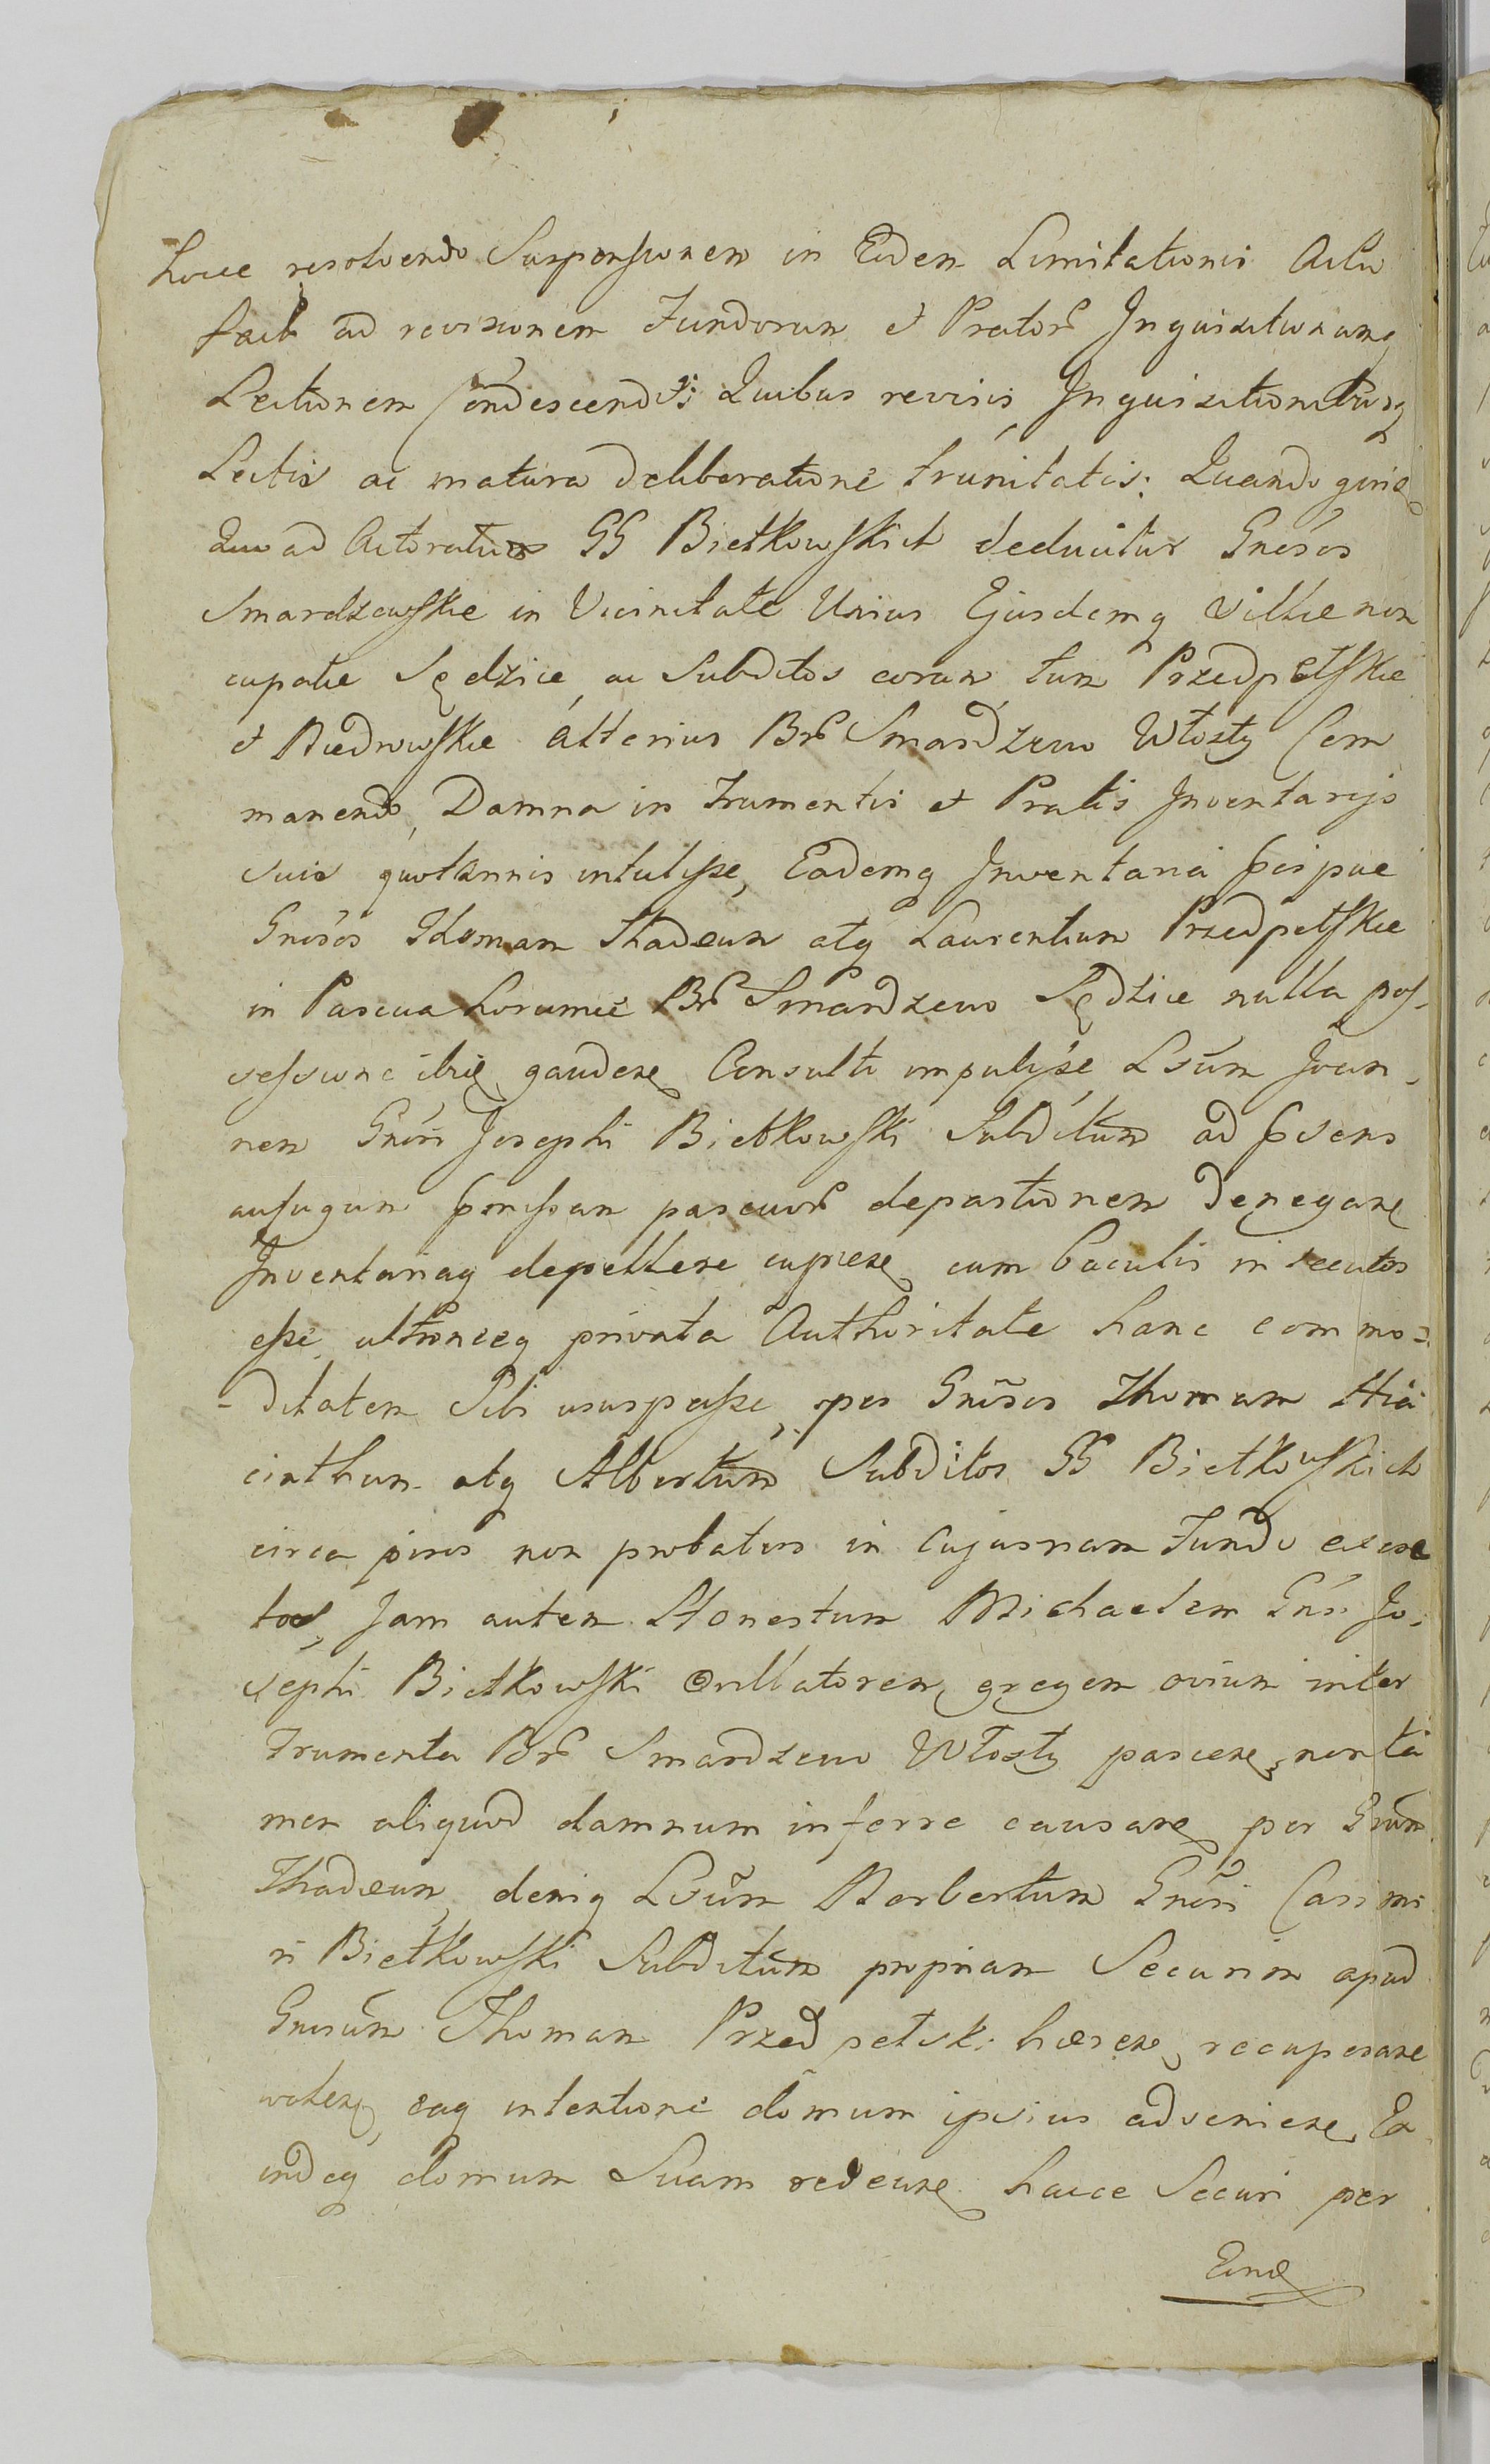 hocce resolvendo Suspensionem in Eadem Limitationis Actu
fact ad revisionem Fundorum et Prator Inquisitionumq
Lectionem Condescendit; Quibus revisis, Inquisitionibusq
Lectis ac matura deliberatione trunitatis; Quando
Quo ad Actoratum GG Bietkowskich deducitur Gnosos
Smardzewskie in Vicinitate Unius Ejusdemq Villae non
cupatae Sędzice, ac Subditos eorum tum Przedpełskie
et Biedrowskie alterius Br Smardzewo Włosty Com
manendo, Damna in Frumentis et Pratis Inventarijs
suis quotannis intulisse, Eademq Inventaria
Gnosos Thomam Thadeum atq Laurentium Przedpełskie
in Pascua Br Smardzewo Sędzice nulla pos-
sessione gaudere Consulti impulisse Lsum Joan-
nem Gnosi Josephi Bietkowski Subditum ad
pascuor depastionem denegare
Inventariaq depellere cupiere cum baculis insecutos
esse, ultroneeq privata Authoritate hanc commo-
-ditatem Sibi usurpasse, per Gnosos Thomam Hia
cinthum atq Albertum Subditos GG Bietkowskich
circa piros non probatus in Cujusnam Fundo
tos, Jam autem Honestum Michaelem Gnosi Jo-
sephi Bietkowski Opillatorem gregem ovium inter
Frumenta Br Smardzewo Włosty pascere, non ta
men aliquod damnum inferre causare per Gnosum
Thadeum, deniq Lsum Norbertum Gnosi Casimi
ri Bietkowski Subditum propriam Securim apud
Gnosum Thomam Przedpetski haerere, recuperare
volere, eaq intentione domum ipsius advenire, Ex
indeq domum Suam redeunte hacce Securi per
Eund